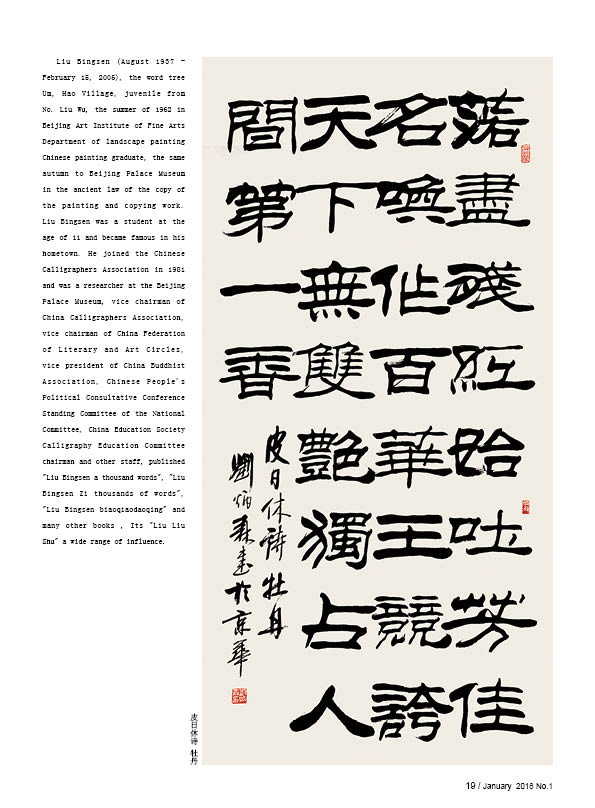 Liu Bingsen (August 1937 -
February i5, 2005), the word tree
Um, Hao Village, juvenile from
No. Liu Wu, the summer of 1962 in
Beijing Art Institute of Fine Arts
Department of landscape painting
Chinese painting graduate, the same
autumn to Beijing Palace Museum
in the ancient law of the copy of
the painting and copying work.
Liu Bingsen was a student at the
age of ii and became famous in his
hometown. He joined the Chinese
Calligraphers Association in 198i
and was a researcher at the Beijing
Palace Museum, vice chairman of
China Calligraphers Association,
vice chairman of China Federation
of Literary and Art Circles,
vice president of China Buddhist
Association, Chinese People's
Political Consultative Conference
Standing Committee of the National
Committee, China Education Society
Calligraphy Education Committee
chairman and other staff, published
"Liu Bingsen a thousand words", "Liu
Bingsen Zi thousands of words",
"Liu Bingsen biaoqiaodaoqing" and
many other books , Its "Liu Liu
Shu" a wide range of influence.
落盡殘紅始吐芳佳
名喚作百華王競誇
天下無雙豔獨占人
間第一香
皮日休詩牡丹
劉炳森書於京華
皮日休诗 牡丹
19 / January 2018 No.1